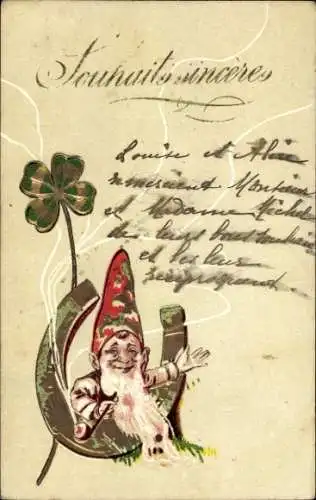 Souhaits sincères
Louise et Alice
remercient Monsieur
et Madame Michel
de leurs bons souhaits
et les leur